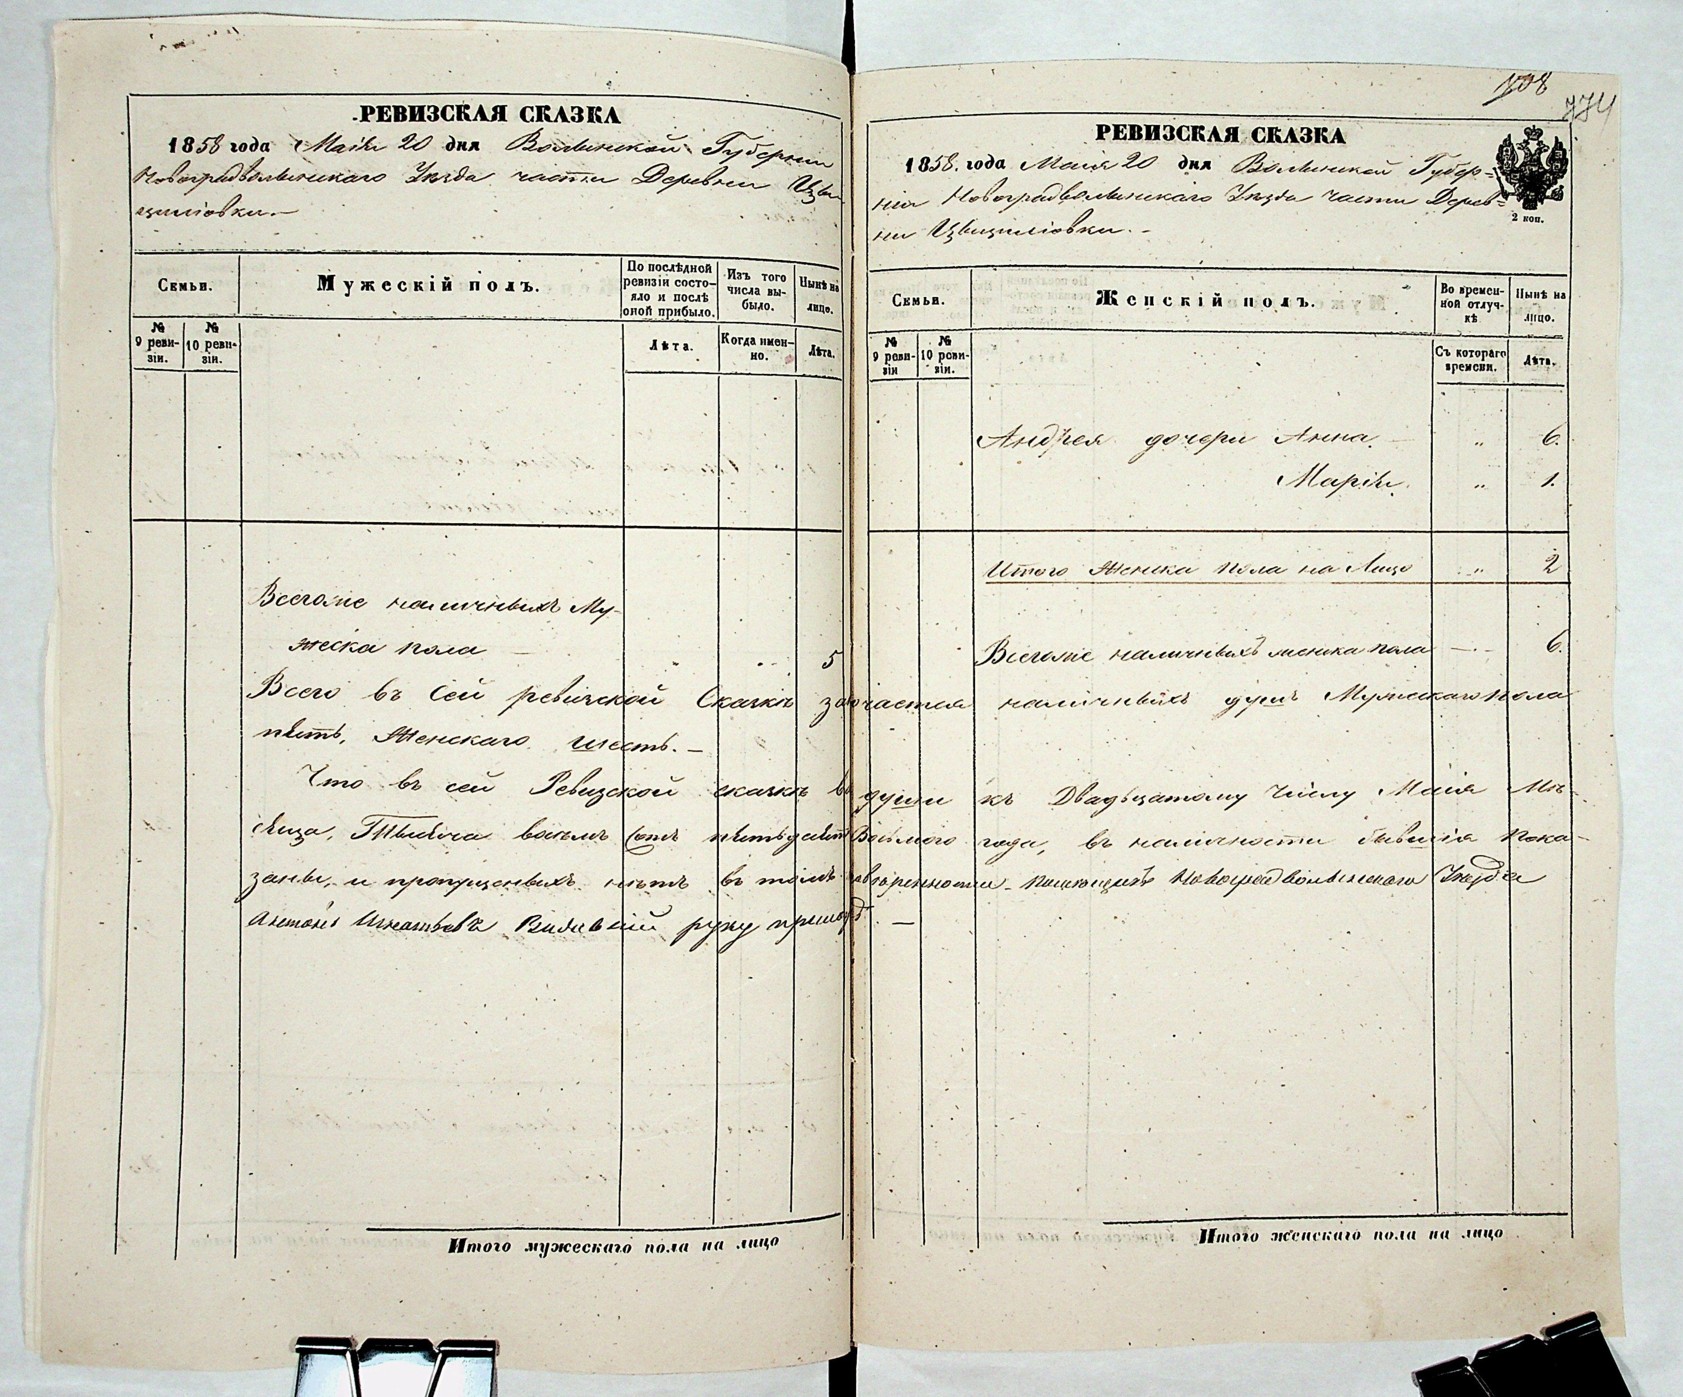 РЕВИЗСКАЯ СКАЗКА
1858 года Маія 20 дня Волынской Губерніи
Новоградволынскаго Уѣзда части Деревни Цви
Семьи.
Мужескій полъ.
По послѣдной ревизіи состо-
яло и послѣ
оной прибыло.
Изъ того
числа вы-
было.
Нынѣ на
лицо.
№
9 реви-
зіи.
№
10 реви-
зіи.
Лѣта.
Когда имен-
но.
Лѣта.
Всегоже наличныхъ Му-
жеска пола 5
Итого мужескаго пола на лицо
708
774
РЕВИЗСКАЯ СКАЗКА
1858. года Маія 20 дня Волынской Губер-
ніи Новоградволынскаго Уѣзда части Дерев-
ни
2 коп.
Семьи.
Женскій полъ.
Во времен-
ной отлуч-
кѣ
Нынѣ на
лицо.
№
9 реви-
зіи
№
10 реви-
зіи.
Съ котораго
времени.
Лѣта.
Андрея дочери Анна. " 6.
Марія. " 1.
Итого женска пола на Лицо " 2
Всегоже наличныхъ женска пола 6.
Всего въ сей ревизской Сказкѣ наличныхъ душъ Мужескаго пола
пять, Женскаго шесть.
Что въ сей Ревизской сказкѣ всѣ души къ Двадцатому Числу Маія Мѣ-
сяца, Тысяча восемь сотъ пятьдесятъ Восьмого года, въ наличности бывшія пока-
заны, и пропущенныхъ нѣтъ въ томъ Новоградволынскаго Уѣзда
Антонъ руку
Итого женскаго пола на лицо